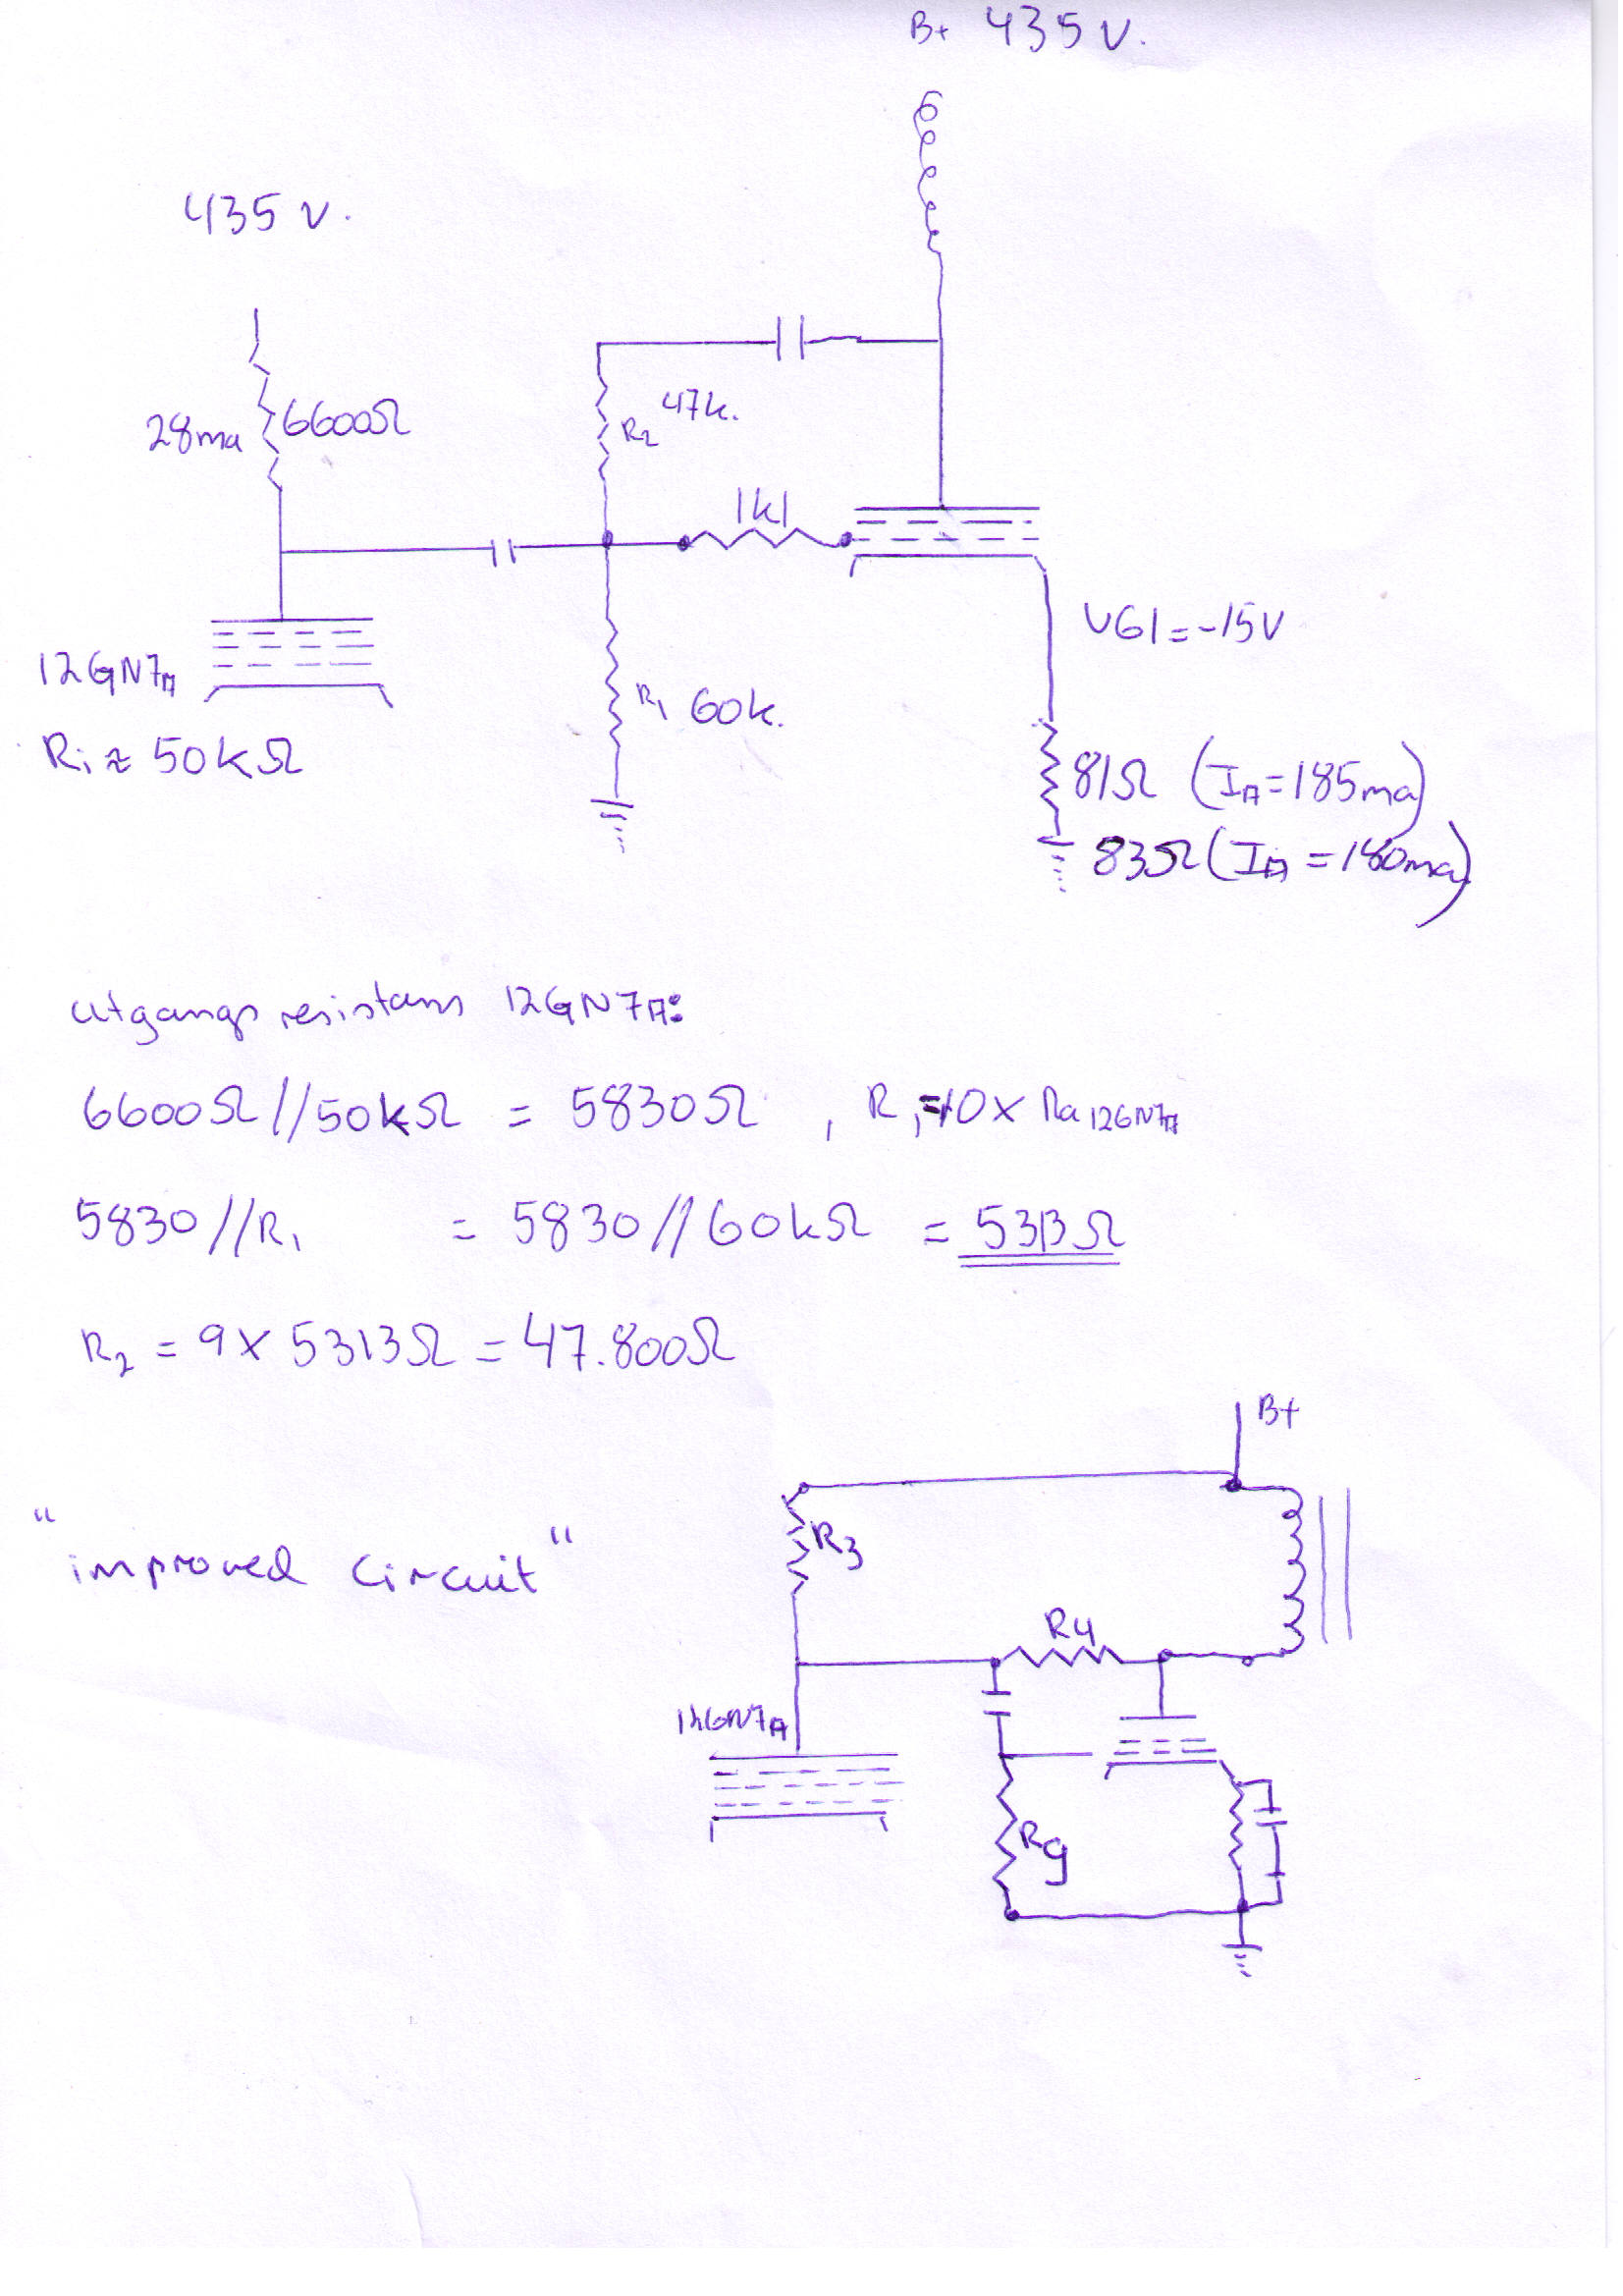 B+ 435 V.
435 V.
28ma 6600Ω
R2 47k.
1k1
12GN7A
Ri ≈ 50kΩ
R1 60k.
UG1 = -15V
81Ω (IA = 185ma)
83Ω (IA = 180ma)
utgangs resistans 12GN7A:
6600Ω // 50kΩ = 5830Ω , R1 = 10 x Ra 12GN7A
5830 // R1 = 5830 // 60kΩ = 5313Ω
R2 = 9 x 5313Ω = 47.800Ω
B+
"improved circuit"
R3
R4
12GN7A
Rg